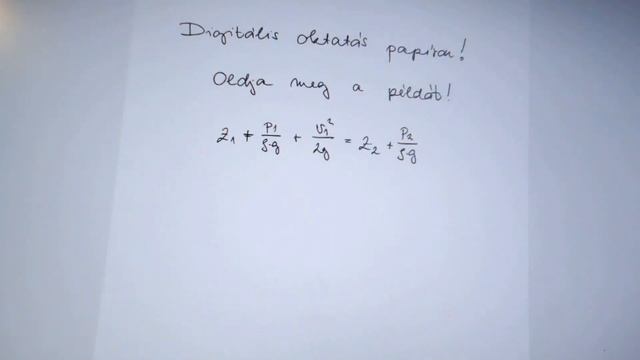 Digitális oktatás papíron!
Oldja meg a példát!
z₁ + p₁/ρ·g + v₁²/2g = z₂ + p₂/ρ·g